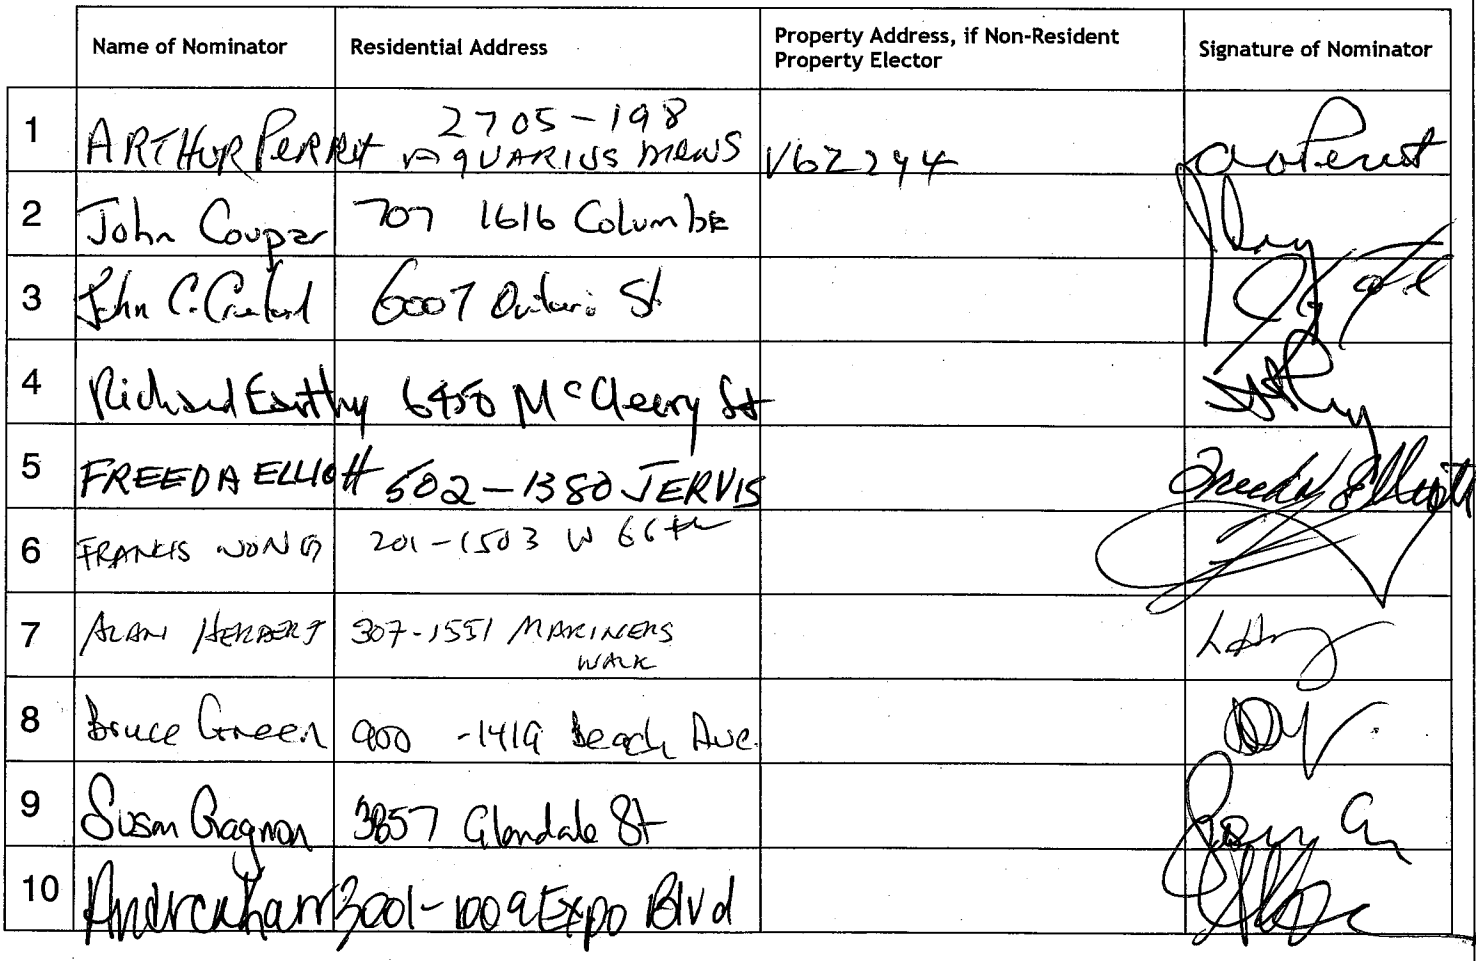 Name of Nominator Residential Address Property Address, if Non-Resident Property Elector Signature of Nominator
1 ARTHUR PERRET 2705-198 AQUARIUS MEWS V6Z 2Y4
2 John Coupar 707 1616 Columbia
3 John C. 6007 Ontario St
4 Richard Earthy 6450 McCleery St
5 FREEDA ELLIOTT 502-1380 JERVIS Freeda Elliott
6 FRANCIS WONG 201-1503 W 66th
7 ALAN HERBERT 307-1551 MARINERS WALK
8 Bruce Green 900 -1419 Beach Ave.
9 Susan Gagnon 3857 Glendale St
10 3001-1009 Expo Blvd